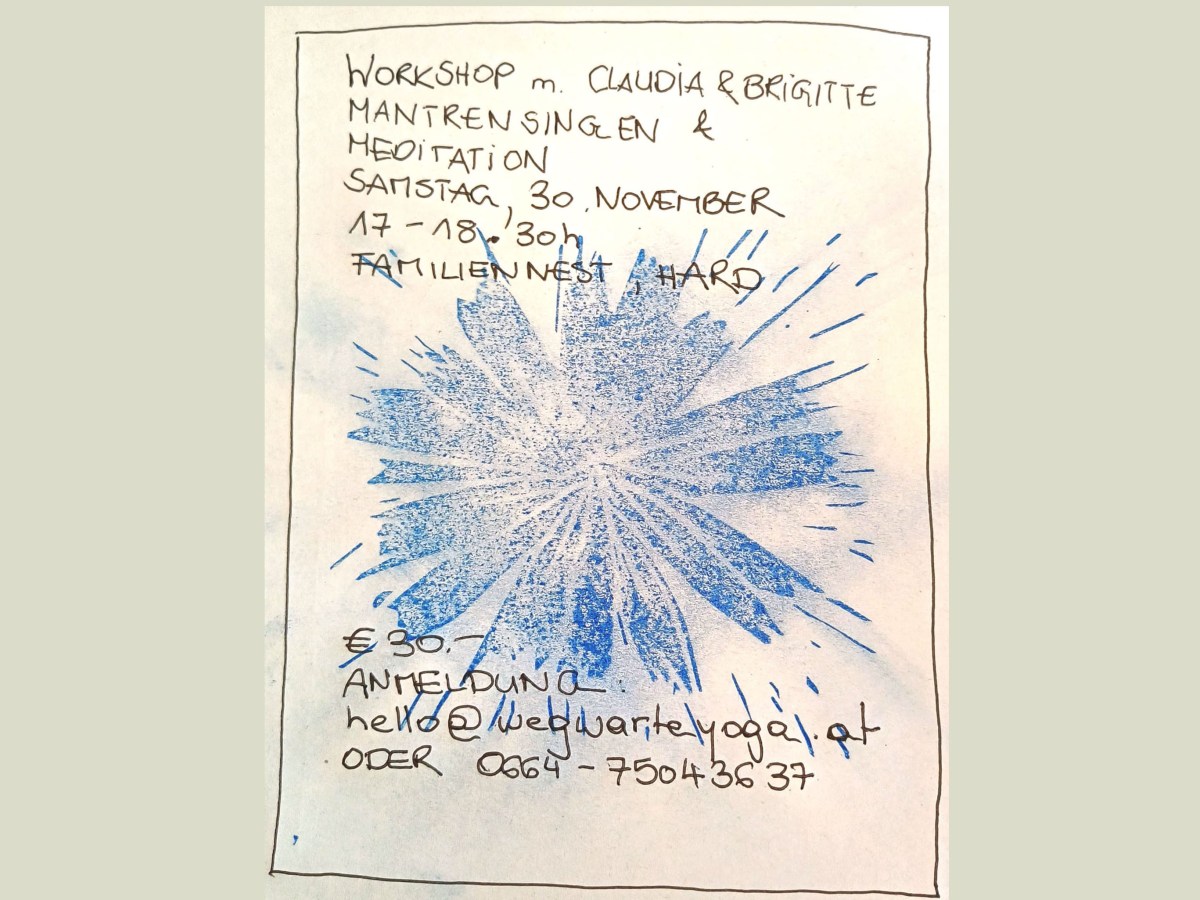 WORKSHOP m. CLAUDIA & BRIGITTE
MANTRENSINGEN &
MEDITATION
SAMSTAG, 30. NOVEMBER
17 - 18.30h
FAMILIENNEST, HARD
€ 30.-
ANMELDUNG:
hello@wegwarteyoga.at
ODER 0664 - 750 43 6 37